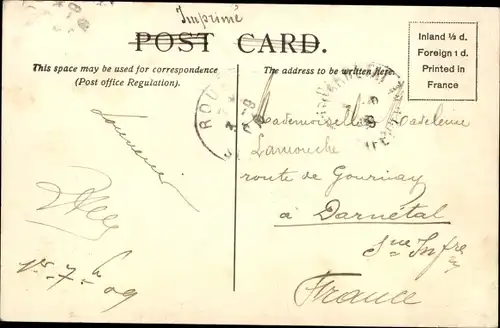 Imprimé
POST CARD.
This space may be used for correspondence
(Post office Regulation).
The address to be written here
Inland ½ d.
Foreign 1 d.
Printed in
France
ROU
Mademoiselle Madeleine
Lamouche
route de Gournay
à Darnétal
Sne Infre
France
Souvenir
1r-7-09